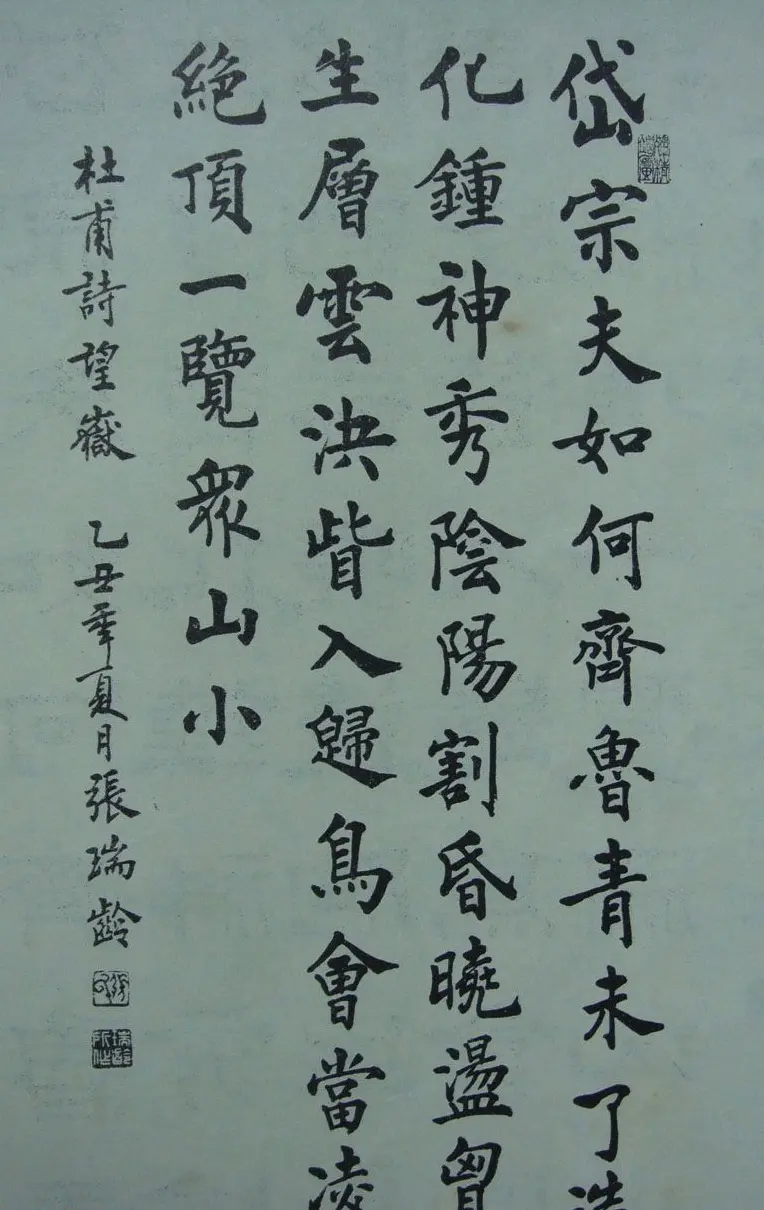 岱宗夫如何齊魯青未了造
化鍾神秀陰陽割昏曉盪胷
生層雲決眥入歸鳥會當凌
絶頂一覽衆山小
杜甫詩望嶽 乙丑年夏月張瑞齡